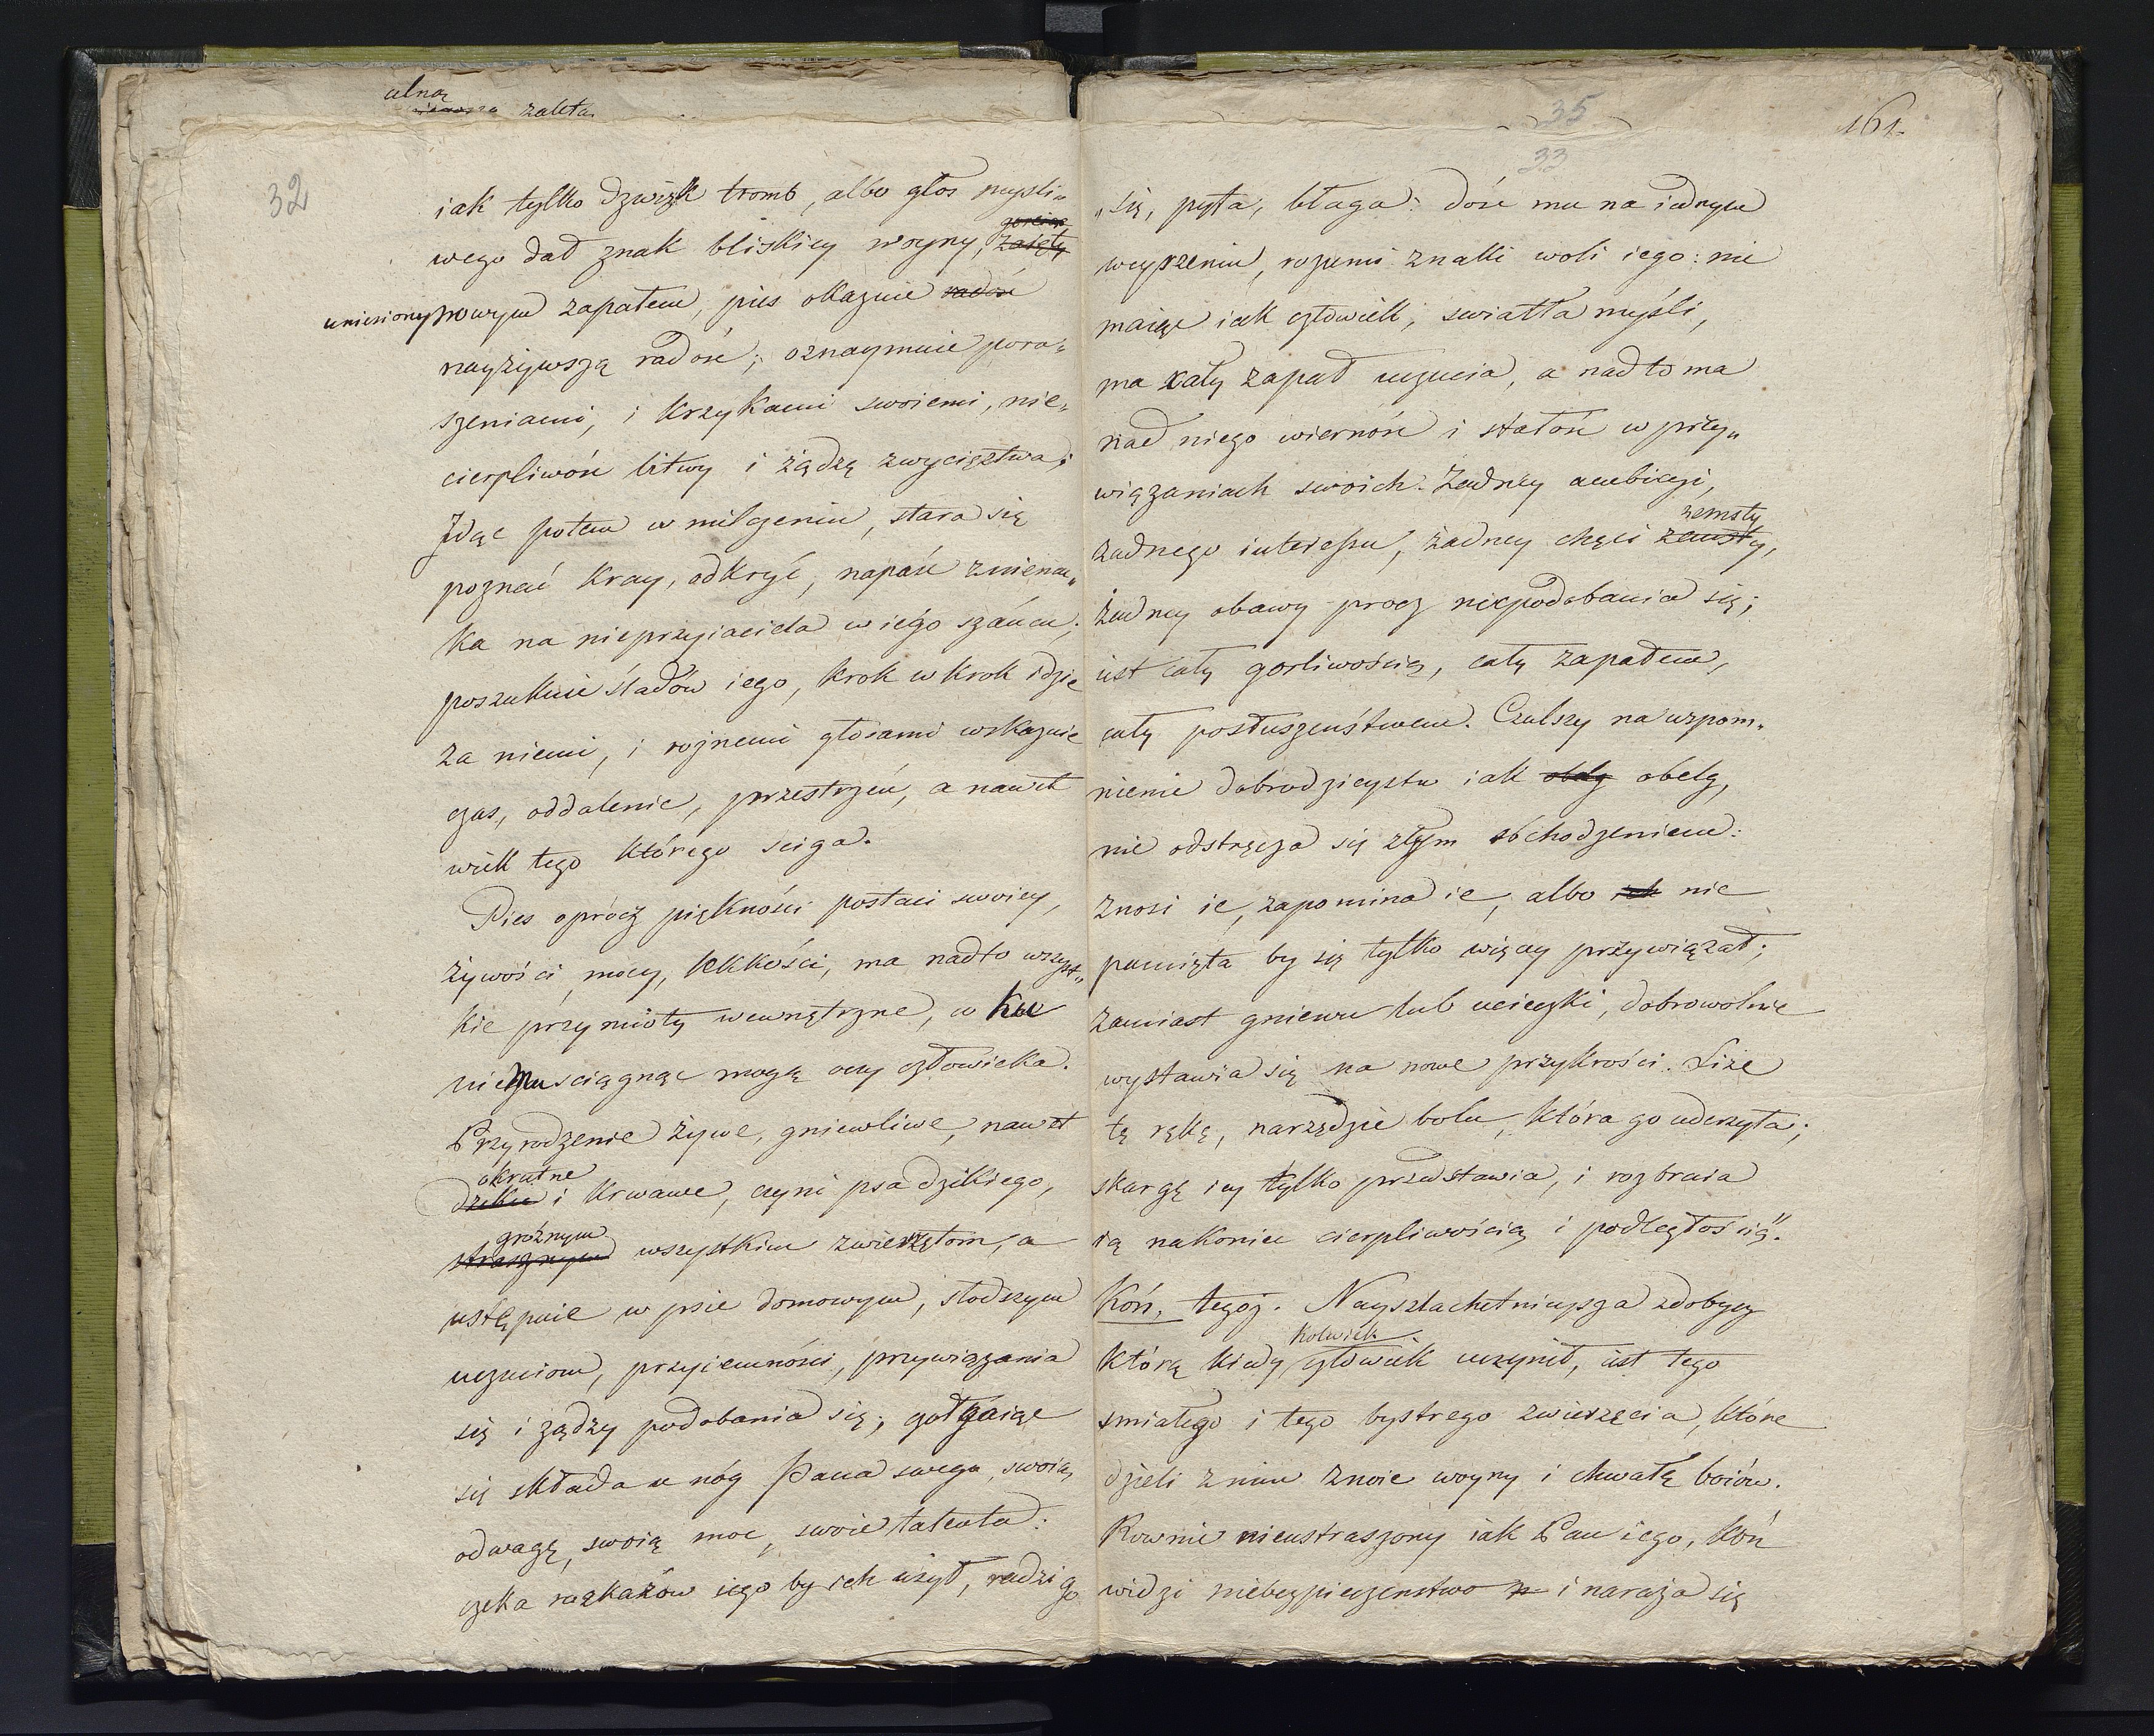 ulną
zaleta
32
iak tylko dzwięk tromb, albo głos mysli„
wego dał znak bliskiey woyny, zaięty
uniesiony nowym zapałem, pies okazuie radość
nayżywszą radość; oznaymuie poru„
szeniami, i krzykami swoiemi, nie„
cierpliwość bitwy i żądzę zwycięztwa;
Idąc potem w milczeniu, stara się
poznać kray, odkryć, napaść znienac„
ka na nieprzyiaciela w iego szańcu;
poszukuie śladów iego, krok w krok idzie
za niemi, i rożnemi głosami wskazuie
czas, oddalenie, przestrzeń, a nawet
wiek tego którego sciga.
Pies oprócz piękności postaci swoiey,
żywości mocy, lekkości, ma nadto wszyst„
kie przymioty wewnętrzne, co ku
niemu sciągnąć mogą oczy człowieka.
Przyrodzenie żywe, gniewliwe, nawet
okrutne
dzikie i krwawe, czyni psa dzikiego,
groźnym
strasznym wszystkim zwierzętom, a
ustępuie w psie domowym, słodszym
uczuciom, przyiemności, przywiązania
się i żądzy podobania się; czołgaiąc
się składa u nóg Pana swego, swoią
odwagę, swoią moc, swoie talenta:
czeka rozkazów iego by ich użył, radzi go
35
33
161.
„się, pyta, błaga: dość mu na iednym
weyrzeniu, rozumi znaki woli iego: nie
maiąc iak człowiek, swiatła myśli,
ma cały zapał uczucia, a nadto ma
nad niego wierność i stałość w przy„
wiązaniach swoich. Żadney ambicyi,
zemsty
żadnego interessu, żadney chęci zemsty,
żadney obawy procz niepodobania się;
iest cały gorliwością, cały zapałem,
cały posłuszeństwem. Czulszy na wspom„
nienie dobrodzieystw iak obelg obelg,
nie odstręcza się złym obchodzeniem:
znosi ie, zapomina ie, albo ich nie
pamięta by się tylko więcey przywiązał;
zamiast gniewu lub ucieczki, dobrowolnie
wystawia się na nowe przykrości. Liże
tę rękę, narzędzie bolu, która go uderzyła;
skargę iey tylko przedstawia, i rozbraia
ią nakoniec cierpliwością i podległością".
Koń, tegoż. Nayszlachetnieysza zdobycz
kolwiek
którą kiedy człowiek uczynił, iest tego
smiałego i tego bystrego zwierzęcia, które
dzieli z nim znoie woyny i chwałę boiów.
Rownie nieustraszony iak Pan iego, koń
widzi niebezpieczenstwo i naraża się